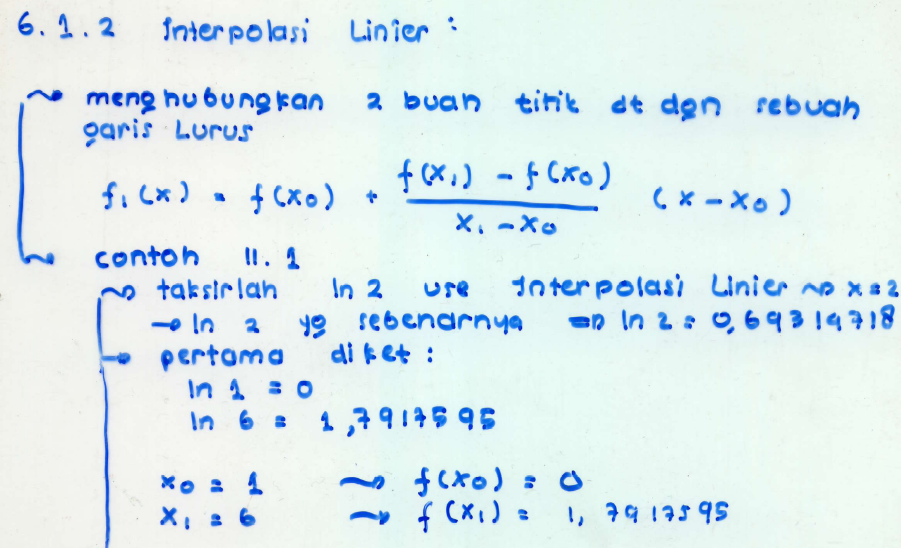 6.1.2 Interpolasi Linier :
~> menghubungkan 2 buah titik dt dgn sebuah
garis Lurus
f₁(x) = f(x₀) + (f(x₁) - f(x₀)) / (x₁ - x₀) (x - x₀)
~> contoh 11.1
~> taksirlah ln 2 use Interpolasi Linier ~> x = 2
→ ln 2 yg sebenarnya => ln 2 = 0,69314718
→ pertama diket :
ln 1 = 0
ln 6 = 1,7917595
x₀ = 1 ~> f(x₀) = 0
x₁ = 6 ~> f(x₁) = 1,7917595